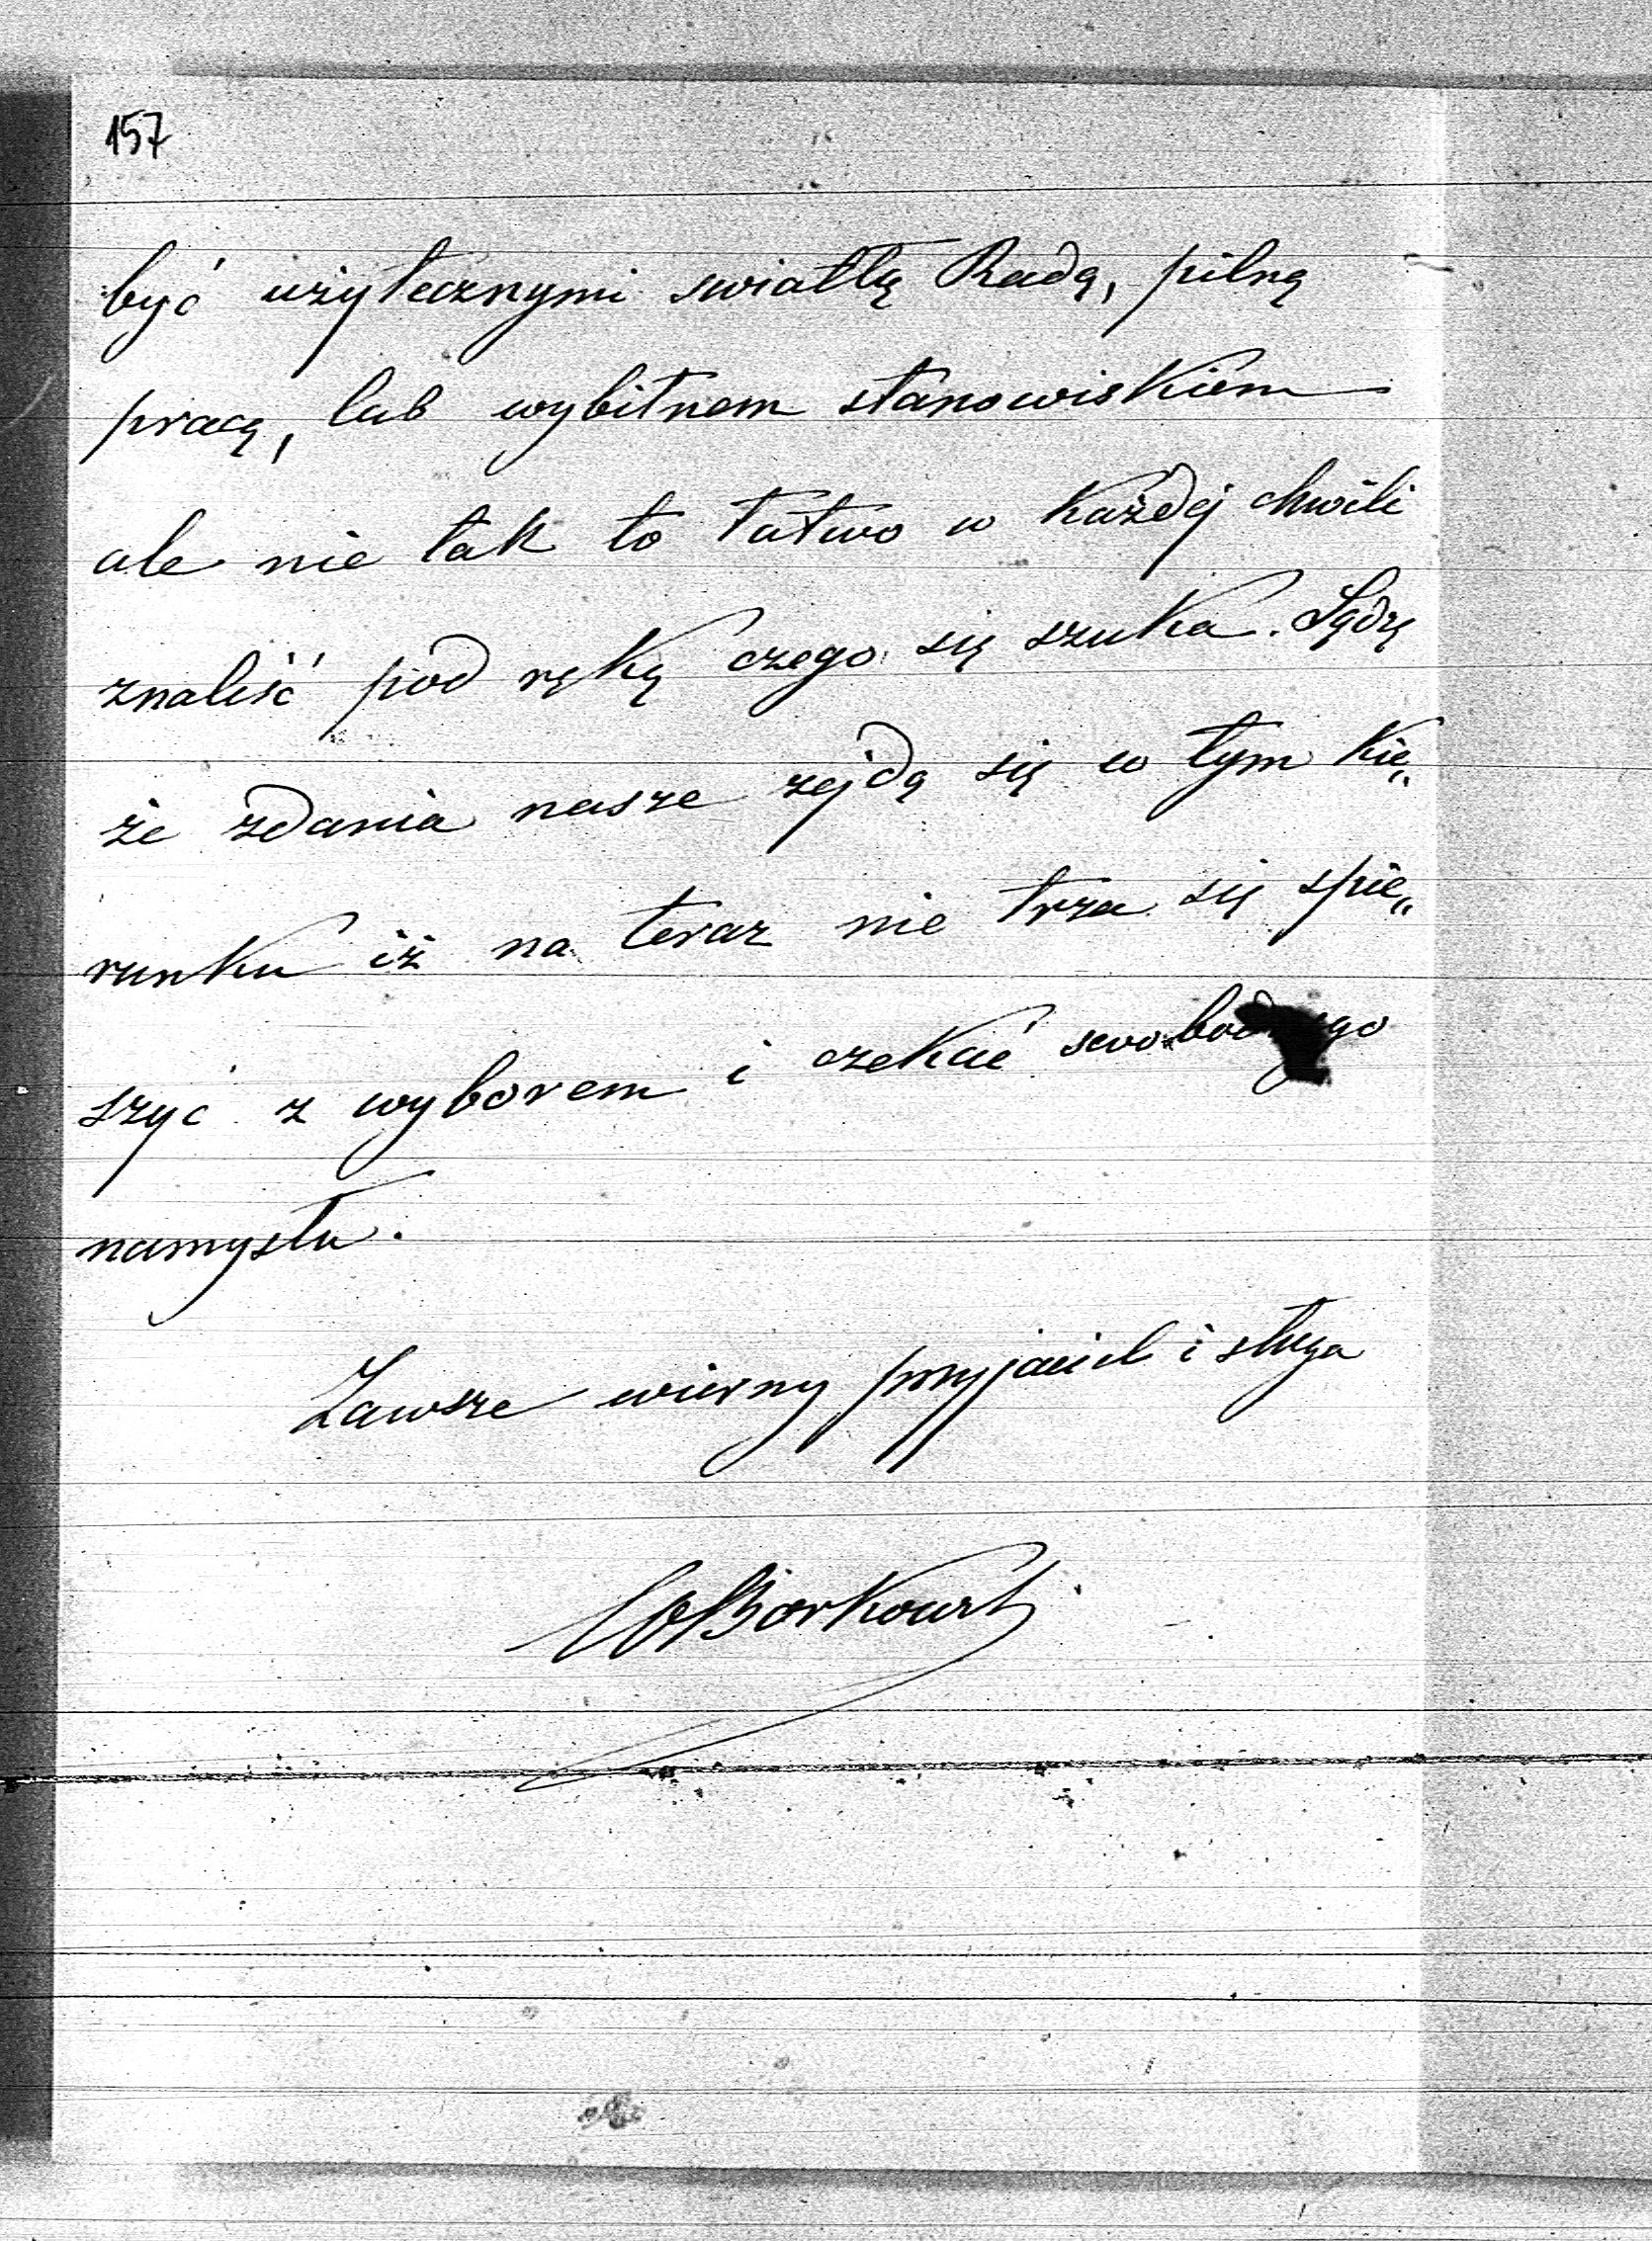 157
być użytecznymi swiatłą Radą, pilną
pracą, lub wybitnem stanowiskiem
ale nie tak to łatwo w każdej chwili
znaliść pod ręką czego się szuka. Sądzę
że zdania nasze zejdą się w tym kie„
runku iż na teraz nie trza się spie„
szyć z wyborem i czekać swobodnego
namysłu.
Zawsze wierny przyjaciel i sługa
Borkowski